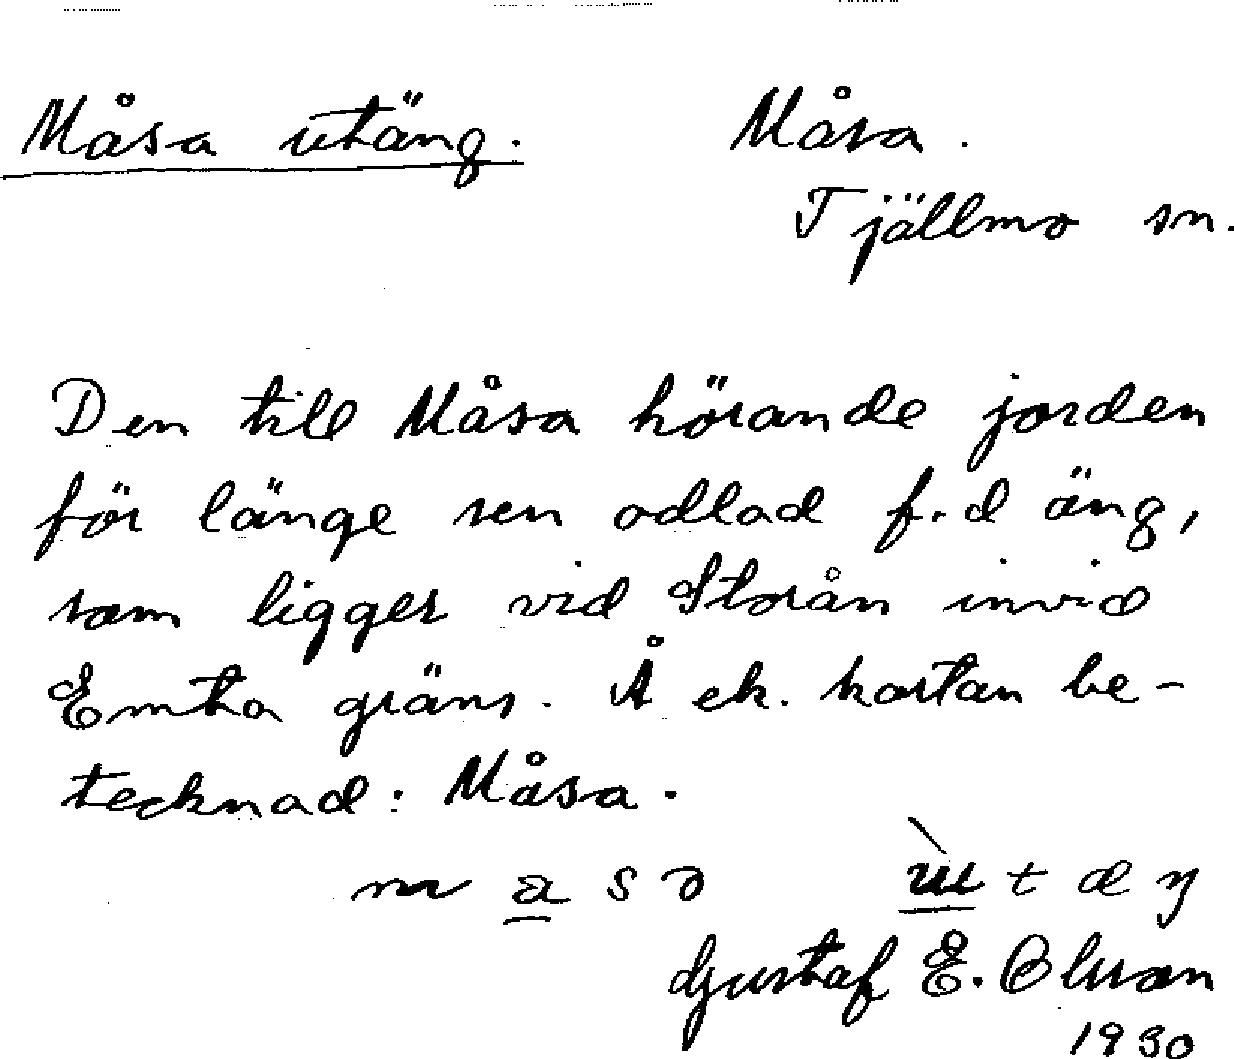 Måsa utäng.
Måsa.
Tjällmo sn.
Den till Måsa hörande jorden
för länge sen odlad f.d äng,
som ligger vid Storån invid
Emtha gräns. Å ek. kartan be-
tecknad: Måsa.
Gustaf E. Olsson
1930